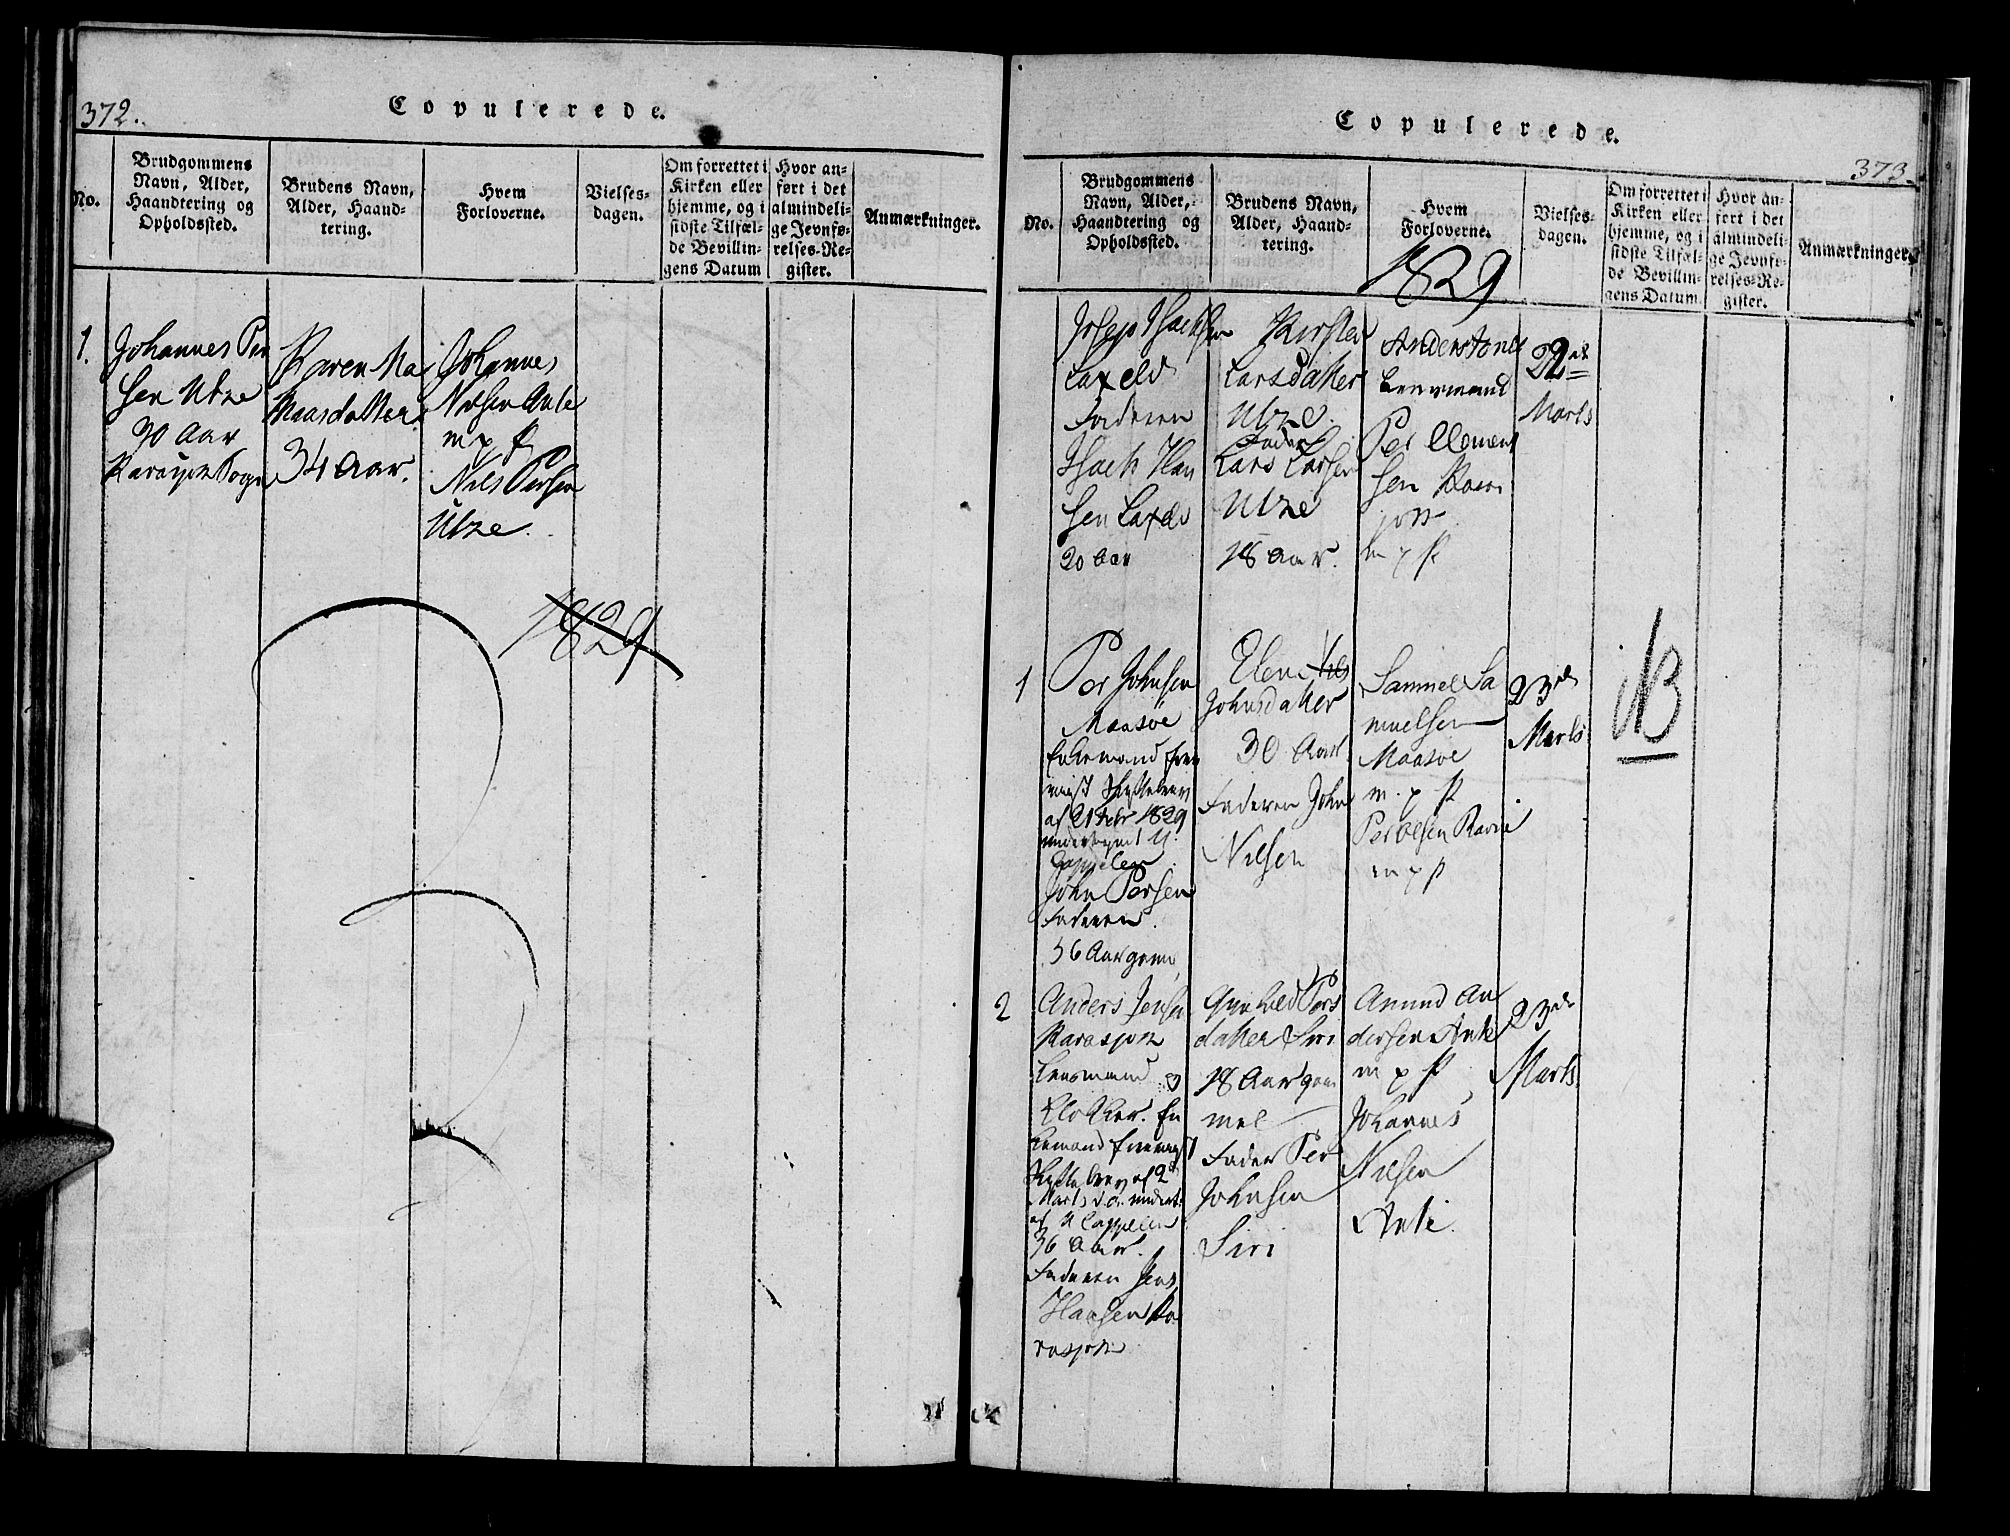 372.
Copulerede.
No.
Brudgommens
Navn, Alder,
Haandtering og
Opholdssted.
Brudens Navn,
Alder, Haand-
tering.
Hvem
Forloverne.
Vielses-
dagen.
Om forrettet i
Kirken eller
hjemme, og i
sidste Tilfæl-
de Bevillin-
gens Datum
Hvor an-
ført i det
almindeli-
ge Jevnfø-
relses-Re-
gister.
Anmærkninger.
1.
Johannes Per
sen Utze
30 Aar
Karasjok Sogn
Karen Ma
Maasdatter
34 Aar.
Johannes
Nilsen Anti
m p p
Nils Persen
Utze.
1829
Copulerede.
373.
No.
Brudgommens
Navn, Alder,
Haandtering og
Opholdssted.
Brudens Navn,
Alder, Haand-
tering.
Hvem
Forloverne.
Vielses-
dagen.
Om forrettet i
Kirken eller
hjemme, og i
sidste Tilfæl-
de Bevillin-
gens Datum.
Hvor an-
ført i det
almindeli-
ge Jevnfø-
relses-Re-
gister.
Anmærkninger.
1829
Josep Isachsen
Laxelv
Faderen
Isach Han
sen Laxelv
20 Aar
Kirsten
Larsdatter
Utze.
Fader
Lars Larsen
Utze
18 Aar.
Anders
Lensmand
Per Clement
sen Karas
jok
m p p
22de
Marts
1
Per Johnsen
Maasøe
Enkemand frem
viist Skiftebrev
af 21 Febr 1829
undertegnet U.
Cappelen
John Persen
Faderen.
36 Aar gam
Elen Nils
Johnsdatter
30 Aar
Faderen John
Nilsen
Samuel Sa
muelsen
Maasøe
m. p p
Per Olsen
m p p
23de
Marts
NB
2
Anders Jensen
Karasjok
Lensmand og
Klokker. En
kemand fremviist
Skiftebrev af 2
Marts d. a. undert.
af U Cappelen
36 Aar.
Faderen Jens
Hansen Ka
rasjok
Gunhild Pers
datter Siri
18 Aar gam
mel
Fader Per
Johnsen
Siri
Amund An
dersen Anti
m p p
Johannes
Nilsen
Anti.
23de
Marts